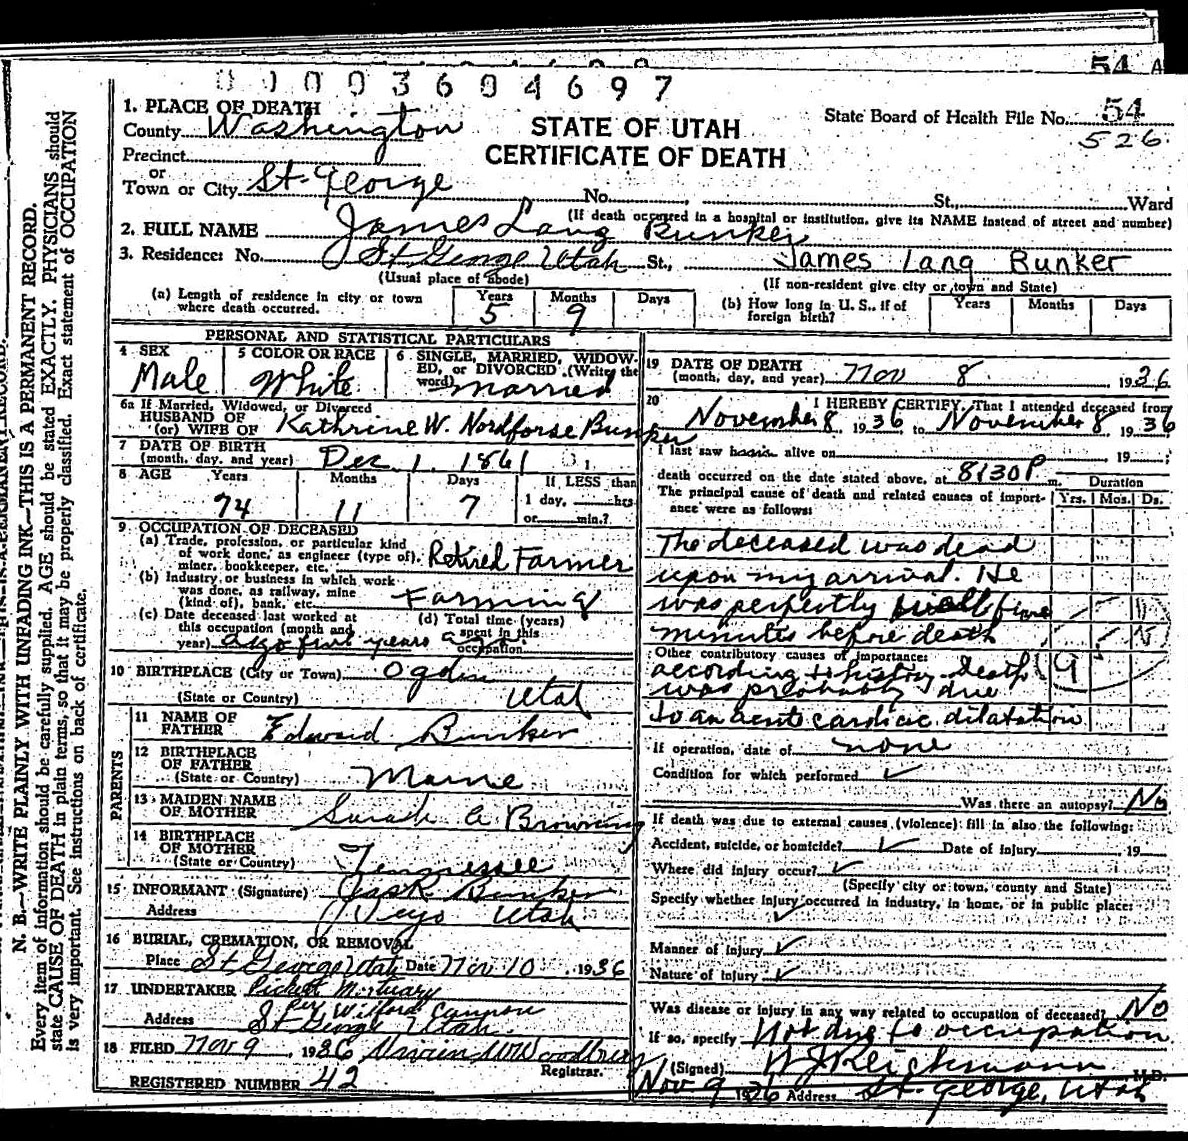 54 A
00003604697
1. PLACE OF DEATH
County Washington
STATE OF UTAH
CERTIFICATE OF DEATH
State Board of Health File No. 54
526
Precinct
or
Town or City St. George No. , St., Ward
(If death occurred in a hospital or institution, give its NAME instead of street and number)
2. FULL NAME James Lang Bunker
3. Residence: No. St George Utah St., James Lang Bunker
(Usual place of abode) (If non-resident give city or town and State)
(a) Length of residence in city or town where death occurred. Years 5 Months 9 Days
(b) How long in U. S., if of foreign birth? Years Months Days
PERSONAL AND STATISTICAL PARTICULARS
4 SEX Male
5 COLOR OR RACE White
6 SINGLE, MARRIED, WIDOWED, or DIVORCED (Write the word) Married
6a If Married, Widowed, or Divorced
HUSBAND OF
(or) WIFE OF Kathrine W. Nordforse Bunker
7 DATE OF BIRTH
(month, day, and year) Dec 1, 1861
8 AGE Years 74 Months 11 Days 7 If LESS than 1 day, hrs or min.?
9 OCCUPATION OF DECEASED
(a) Trade, profession, or particular kind of work done, as engineer (type of), miner, bookkeeper, etc. Retired Farmer
(b) Industry or business in which work was done, as railway, mine (kind of), bank, etc. Farming
(c) Date deceased last worked at this occupation (month and year) ago five years ago
(d) Total time (years) spent in this occupation
10 BIRTHPLACE (City or Town) Ogden
(State or Country) Utah
PARENTS
11 NAME OF FATHER Edward Bunker
12 BIRTHPLACE OF FATHER
(State or Country) Maine
13 MAIDEN NAME OF MOTHER Sarah A Browning
14 BIRTHPLACE OF MOTHER
(State or Country) Tennessee
15 INFORMANT (Signature) Jas R Bunker
Address Veyo Utah
16 BURIAL, CREMATION, OR REMOVAL
Place St George Utah Date Nov 10, 1936
17 UNDERTAKER Pickett Mortuary
per Wilford Cannon
Address St George Utah
18 FILED Nov 9, 1936 Woodbury
Registrar.
REGISTERED NUMBER 42
19 DATE OF DEATH
(month, day, and year) Nov 8, 1936
20 I HEREBY CERTIFY, That I attended deceased from
November 8, 1936 to November 8, 1936
I last saw h alive on , 19
death occurred on the date stated above, at 8:30 P m.
The principal cause of death and related causes of importance were as follows:
Duration
Yrs. Mos. Ds.
The deceased was dead
upon my arrival. He
was perfectly well five
minutes before death
Other contributory causes of importance:
according to history. Death
was probably due
to an acute cardiac dilatation
If operation, date of none
Condition for which performed ✓
Was there an autopsy? No
If death was due to external causes (violence) fill in also the following:
Accident, suicide, or homicide? ✓ Date of injury , 19
Where did injury occur? ✓
(Specify city or town, county and State)
Specify whether injury occurred in industry, in home, or in public place:
✓
Manner of injury ✓
Nature of injury ✓
Was disease or injury in any way related to occupation of deceased? No
If so, specify Not due to occupation
(Signed) W J Reichmann M.D.
Nov 9 1936 Address St. George, Utah
N. B.—WRITE PLAINLY WITH UNFADING INK—THIS IS A PERMANENT RECORD.
Every item of information should be carefully supplied. AGE should be stated EXACTLY. PHYSICIANS should
state CAUSE OF DEATH in plain terms, so that it may be properly classified. Exact statement of OCCUPATION
is very important. See instructions on back of certificate.